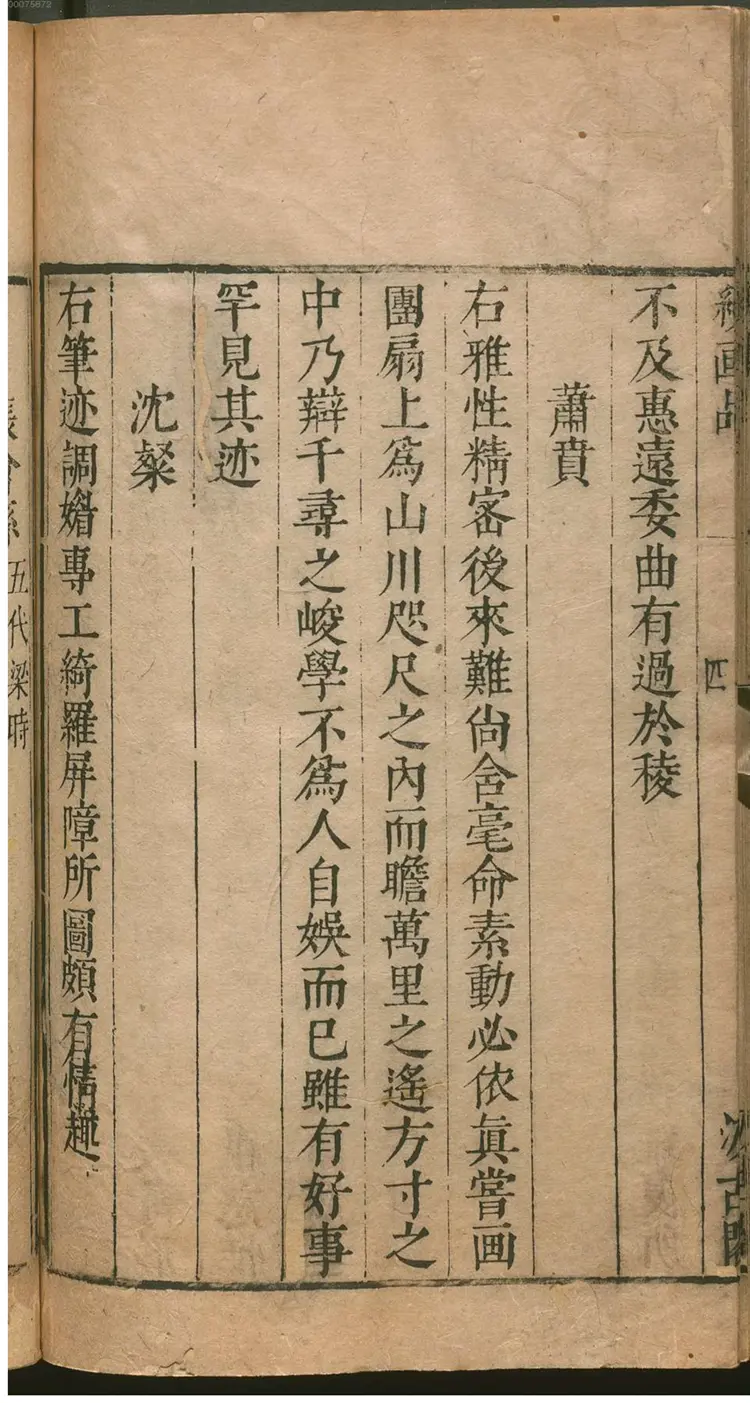 續画品
四
汲古閣
不及惠遠委曲有過於稜
蕭賁
右雅性精密後來難尚含毫命素動必依真嘗画
團扇上爲山川咫尺之內而瞻萬里之遙方寸之
中乃辯千尋之峻學不爲人自娛而已雖有好事
罕見其迹
沈粲
右筆迹調媚專工綺羅屏障所圖頗有情趣
五代梁時
00075872